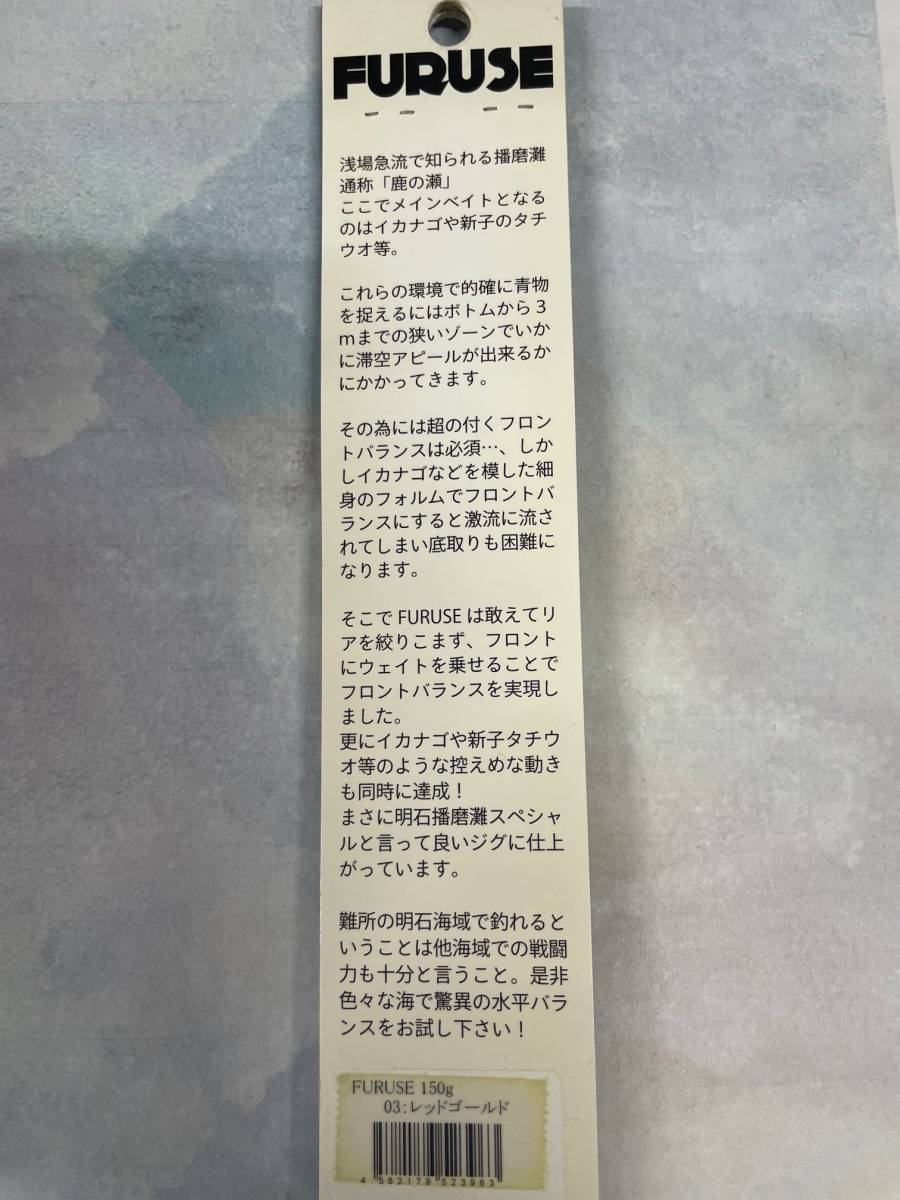 FURUSE
浅場急流で知られる播磨灘
通称「鹿の瀬」
ここでメインベイトとなる
のはイカナゴや新子のタチ
ウオ等。
これらの環境で的確に青物
を捉えるにはボトムから３
ｍまでの狭いゾーンでいか
に滞空アピールが出来るか
にかかってきます。
その為には超の付くフロン
トバランスは必須…、しか
しイカナゴなどを模した細
身のフォルムでフロントバ
ランスにすると激流に流さ
れてしまい底取りも困難に
なります。
そこで FURUSE は敢えてリ
アを絞りこまず、フロント
にウェイトを乗せることで
フロントバランスを実現し
ました。
更にイカナゴや新子タチウ
オ等のような控えめな動き
も同時に達成！
まさに明石播磨灘スペシャ
ルと言って良いジグに仕上
がっています。
難所の明石海域で釣れると
いうことは他海域での戦闘
力も十分と言うこと。是非
色々な海で驚異の水平バラ
ンスをお試し下さい！
FURUSE 150g
03:レッドゴールド
4 562179 523963